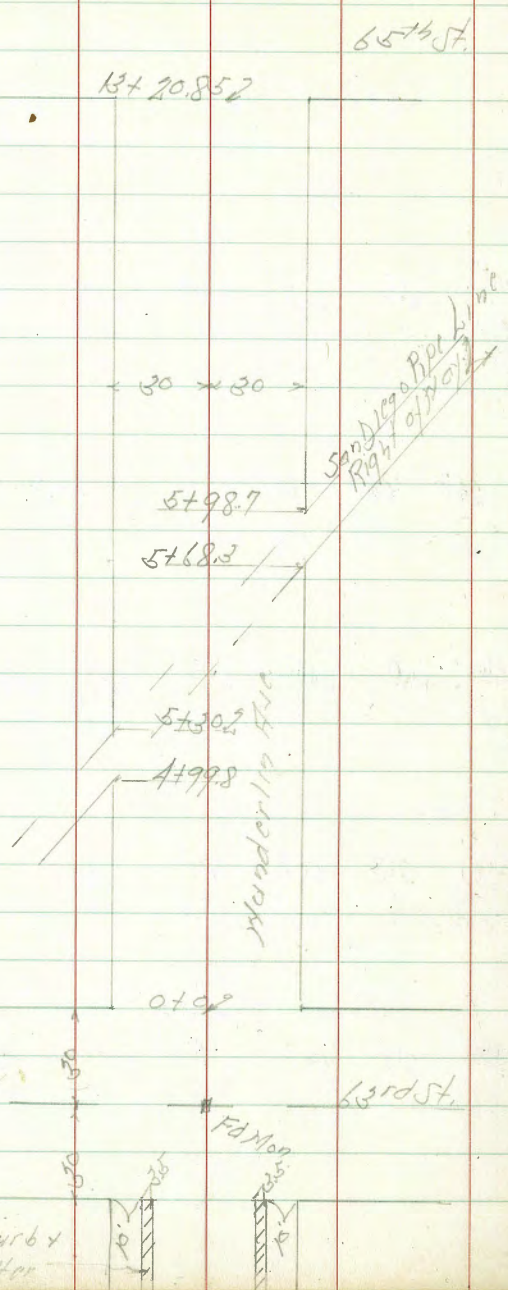 65th St.
13+20.852
30 30
San Diego Pipe Line
Right of Way
5+98.7
5+68.3
5+30.2
4+99.8
Wunderlin Ave
0+00
30
63rd St.
Fd Mon
30
3.5
3.5
10'
10'